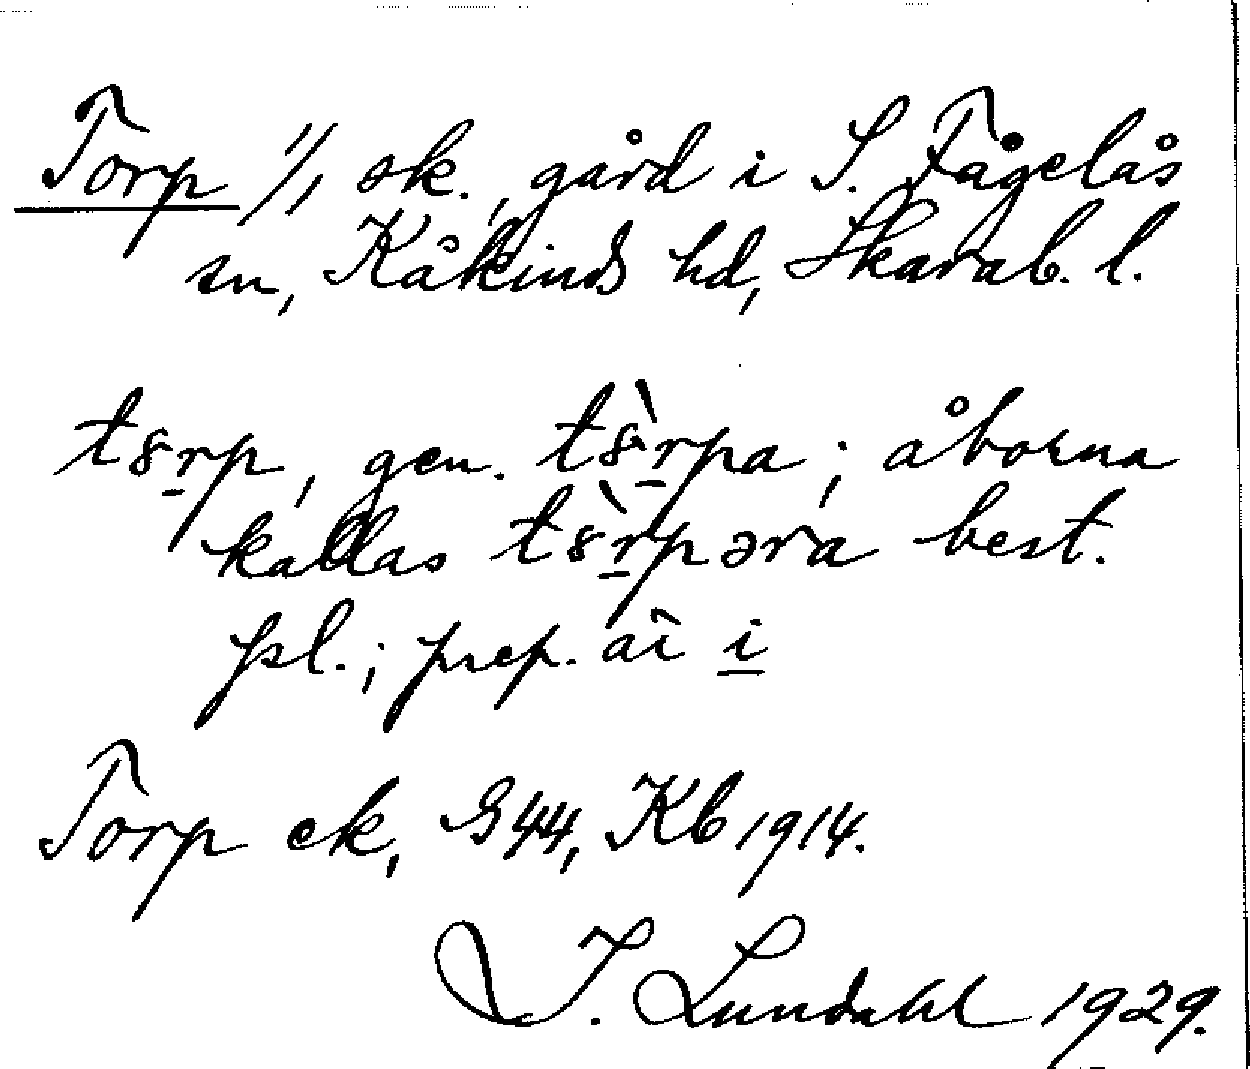 Torp 1/1 sk., gård i S. Fågelås
sn, Kåkinds hd, Skarab. l.
tꞷr̲p, gen. tꞷ̀r̲pa; åborna
kallas tꞷ̀r̲pəra best.
pl.; prep. ai i
Torp ek, G44, Kb 1914.
I. Lundahl 1929.